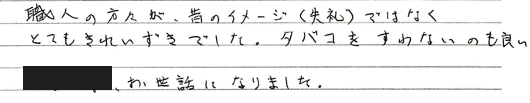 職人の方々が、昔のイメージ(失礼)ではなく
とてもきれいずきでした。タバコをすわないのも良い
、お世話になりました。